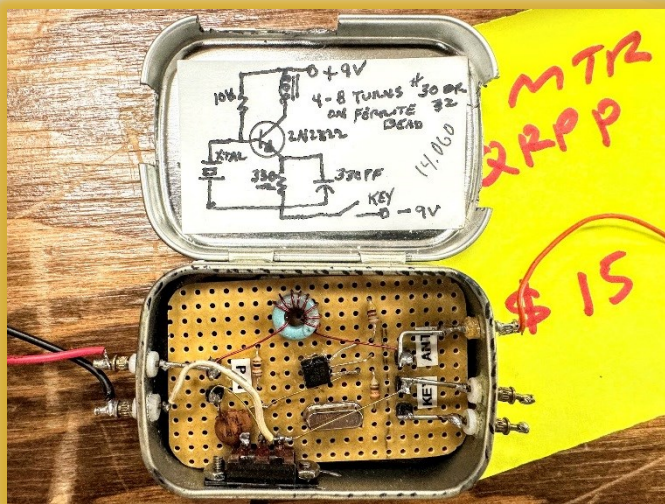 +9V
10K
4-8 TURNS #30 OR
32
ON FERRITE
BEAD
2N2222
14.060
XTAL
330
330PF
KEY
-9V
MTR
QRPP
$15
ANT
KEY
P